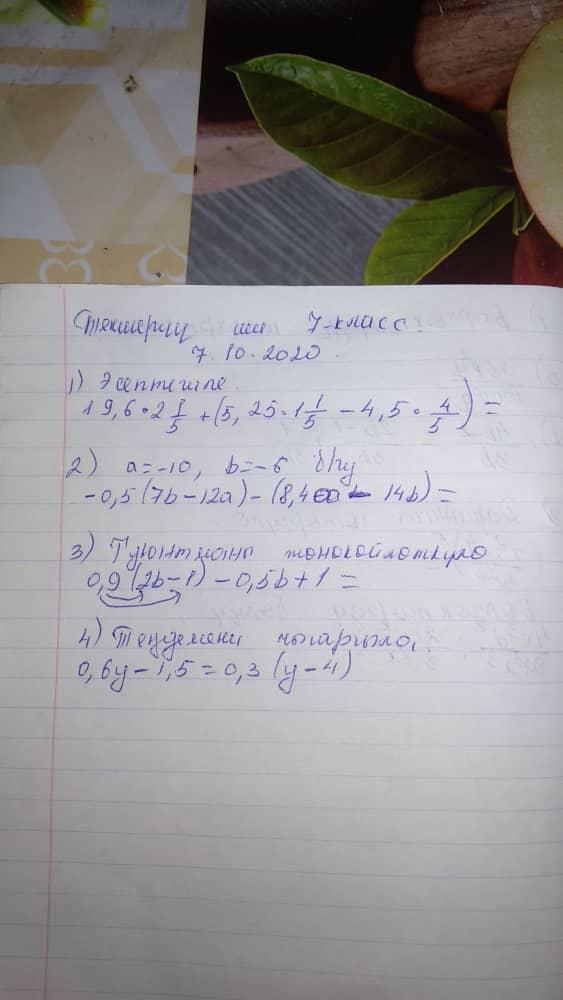 Текшерүү иш 7-класс.
7.10.2020.
1) Эсептегиле.
19,6 · 2 1/5 + (5,25 · 1 1/5 − 4,5 · 4/5) =
2) a=-10, b=-6
-0,5(7b-12a)-(8,4 14b)=
3) Туюнтманы жөнөкөйлөткүлө
0,9(2b-1)-0,5b+1=
4) Теңдемени чыгарыла,
0,6y-1,5=0,3(y-4)